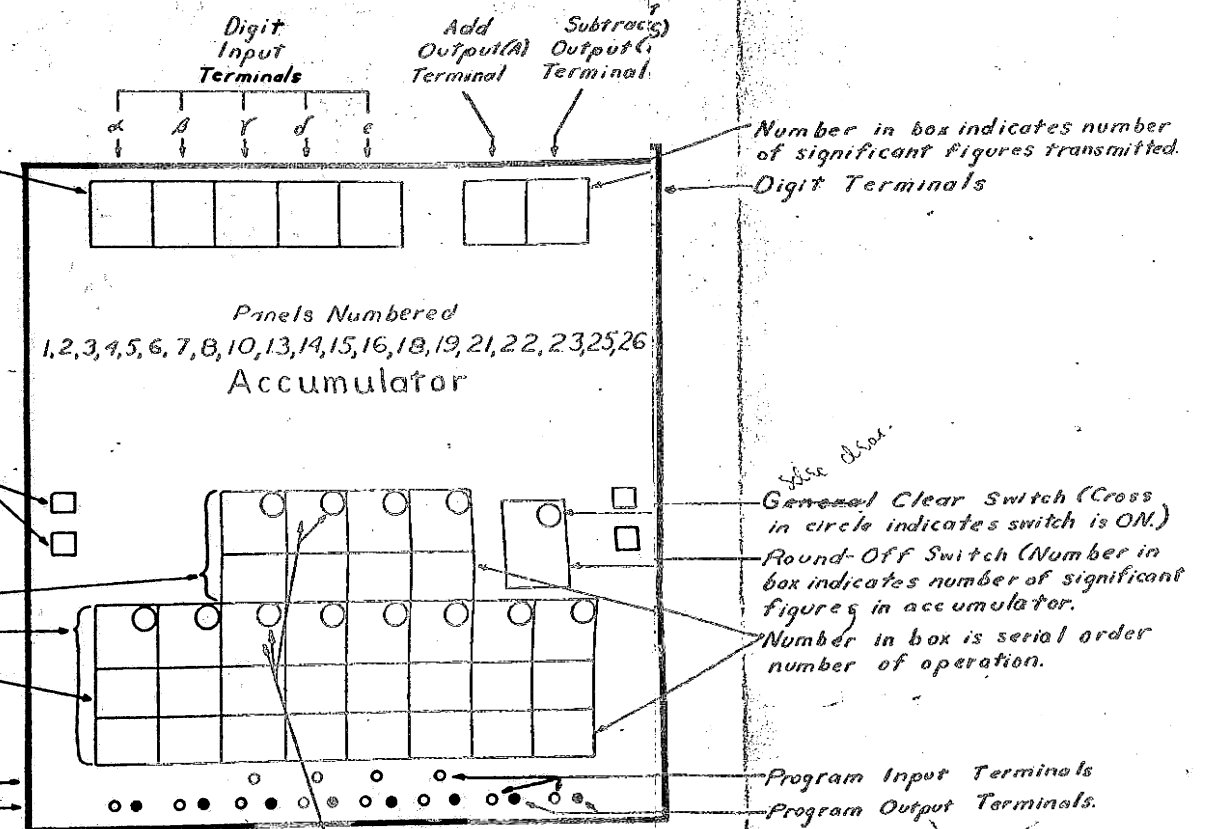 Digit
Input
Terminals
α β γ δ ε
Add
Output(A)
Terminal
Subtract
Output(S)
Terminal
Number in box indicates number
of significant figures transmitted.
Digit Terminals
Panels Numbered
1,2,3,4,5,6,7,8,10,13,14,15,16,18,19,21,22,23,25,26
Accumulator
General Clear Switch (Cross
in circle indicates switch is ON.)
Round-Off Switch (Number in
box indicates number of significant
figures in accumulator.
Number in box is serial order
number of operation.
Program Input Terminals
Program Output Terminals.